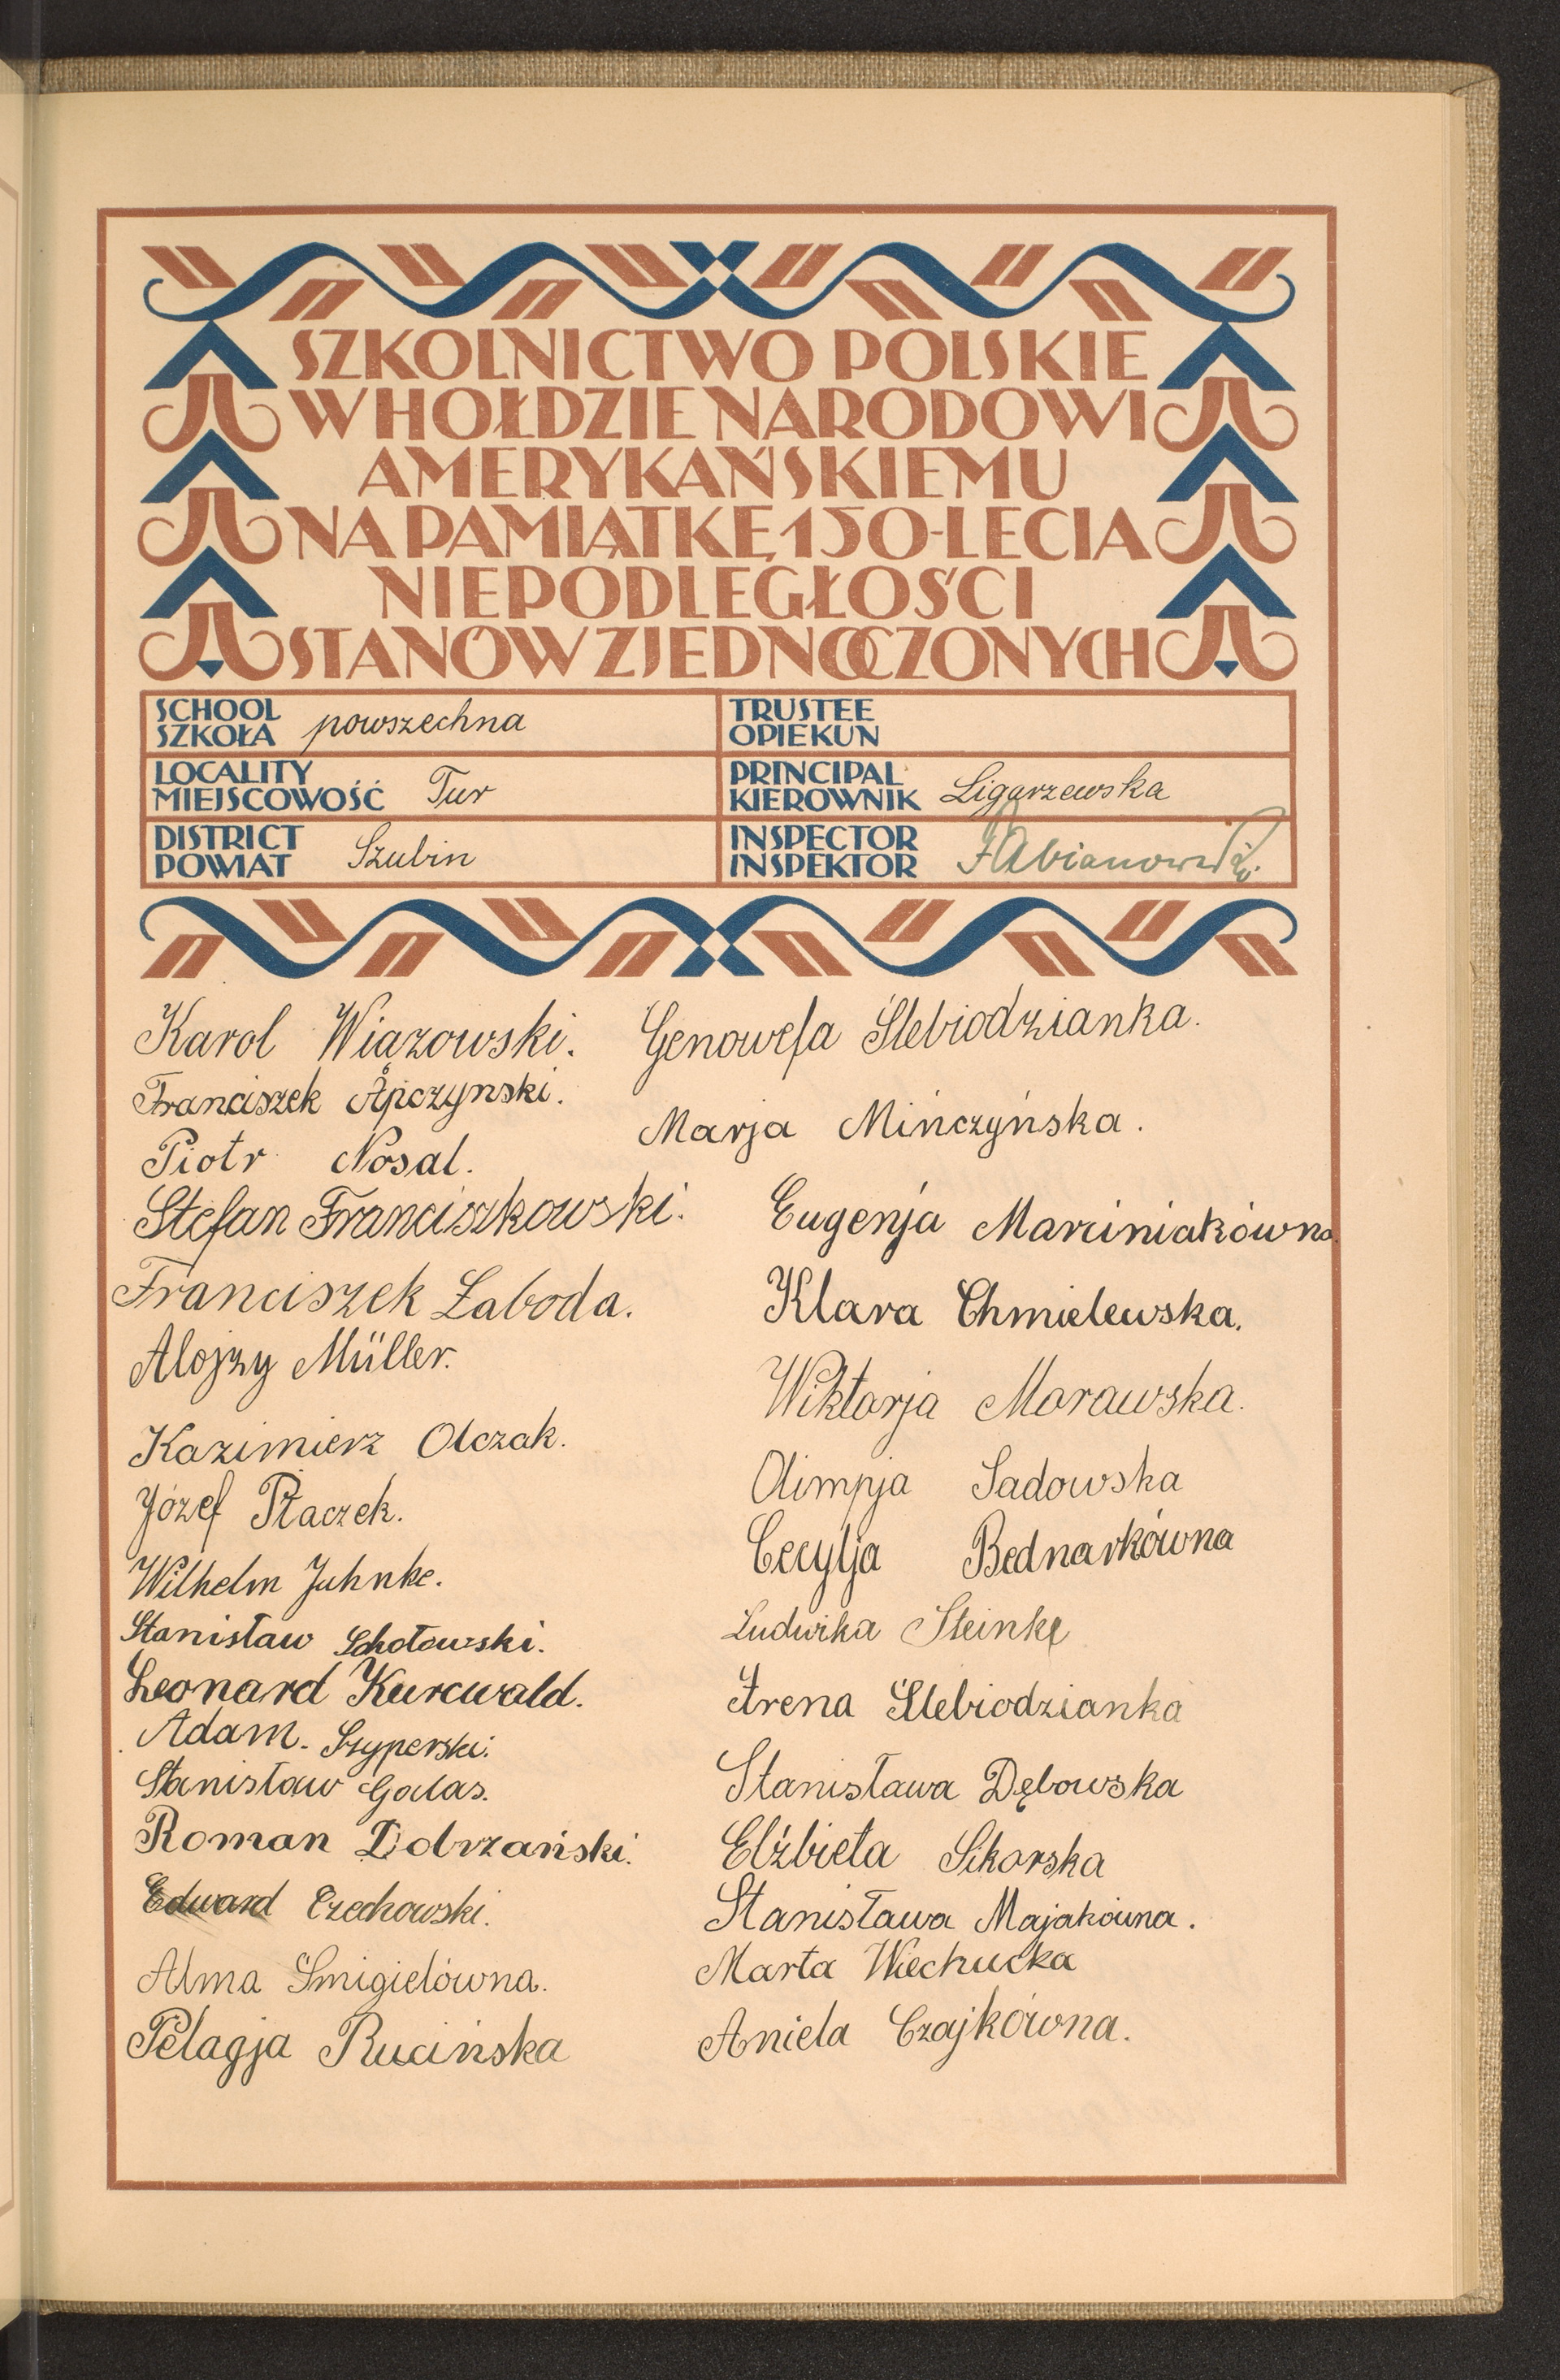 SZKOLNICTWO POLSKIE
W HOŁDZIE NARODOWI
AMERYKAŃSKIEMU
NA PAMIĄTKĘ 150-LECIA
NIEPODLEGŁOŚCI
STANÓW ZJEDNOCZONYCH
SCHOOL
SZKOŁA powszechna
TRUSTEE
OPIEKUN
LOCALITY
MIEJSCOWOŚĆ Tur
PRINCIPAL
KIEROWNIK Ligarzewska
DISTRICT
POWIAT Szubin
INSPECTOR
INSPEKTOR
Karol Wiązowski.
Franciszek Apczynski.
Piotr Nosal.
Stefan Franciszkowski.
Franciszek Łaboda.
Alojzy Müller.
Kazimierz Olczak.
Józef Ptaczek.
Wilhelm Juhnke.
Stanisław Schotowski.
Leonard Kurcwald.
Adam. Szyperski.
Stanisław Golas.
Roman Dobrzański.
Edward Czechowski.
Alma Śmigielówna.
Pelagja Rucińska
Genowefa Ślebiodzianka.
Marja Mińczyńska.
Eugenja Marciniakówna
Klara Chmielewska.
Wiktorja Morawska.
Olimpja Sadowska
Cecylja Bednarkówna
Ludwika Steinke
Irena Ślebiodzianka
Stanisława Dębowska
Elżbieta Sikorska
Stanisława Majakówna.
Marta Wiechucka
Aniela Czajkówna.